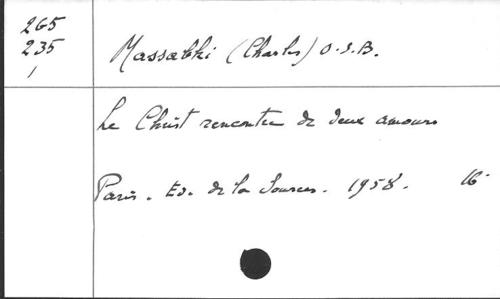 265
235
1
Massabki (Charles) O.S.B.
Le Christ rencontre de deux amours
Paris. Ed. de la Source. 1958. 16°